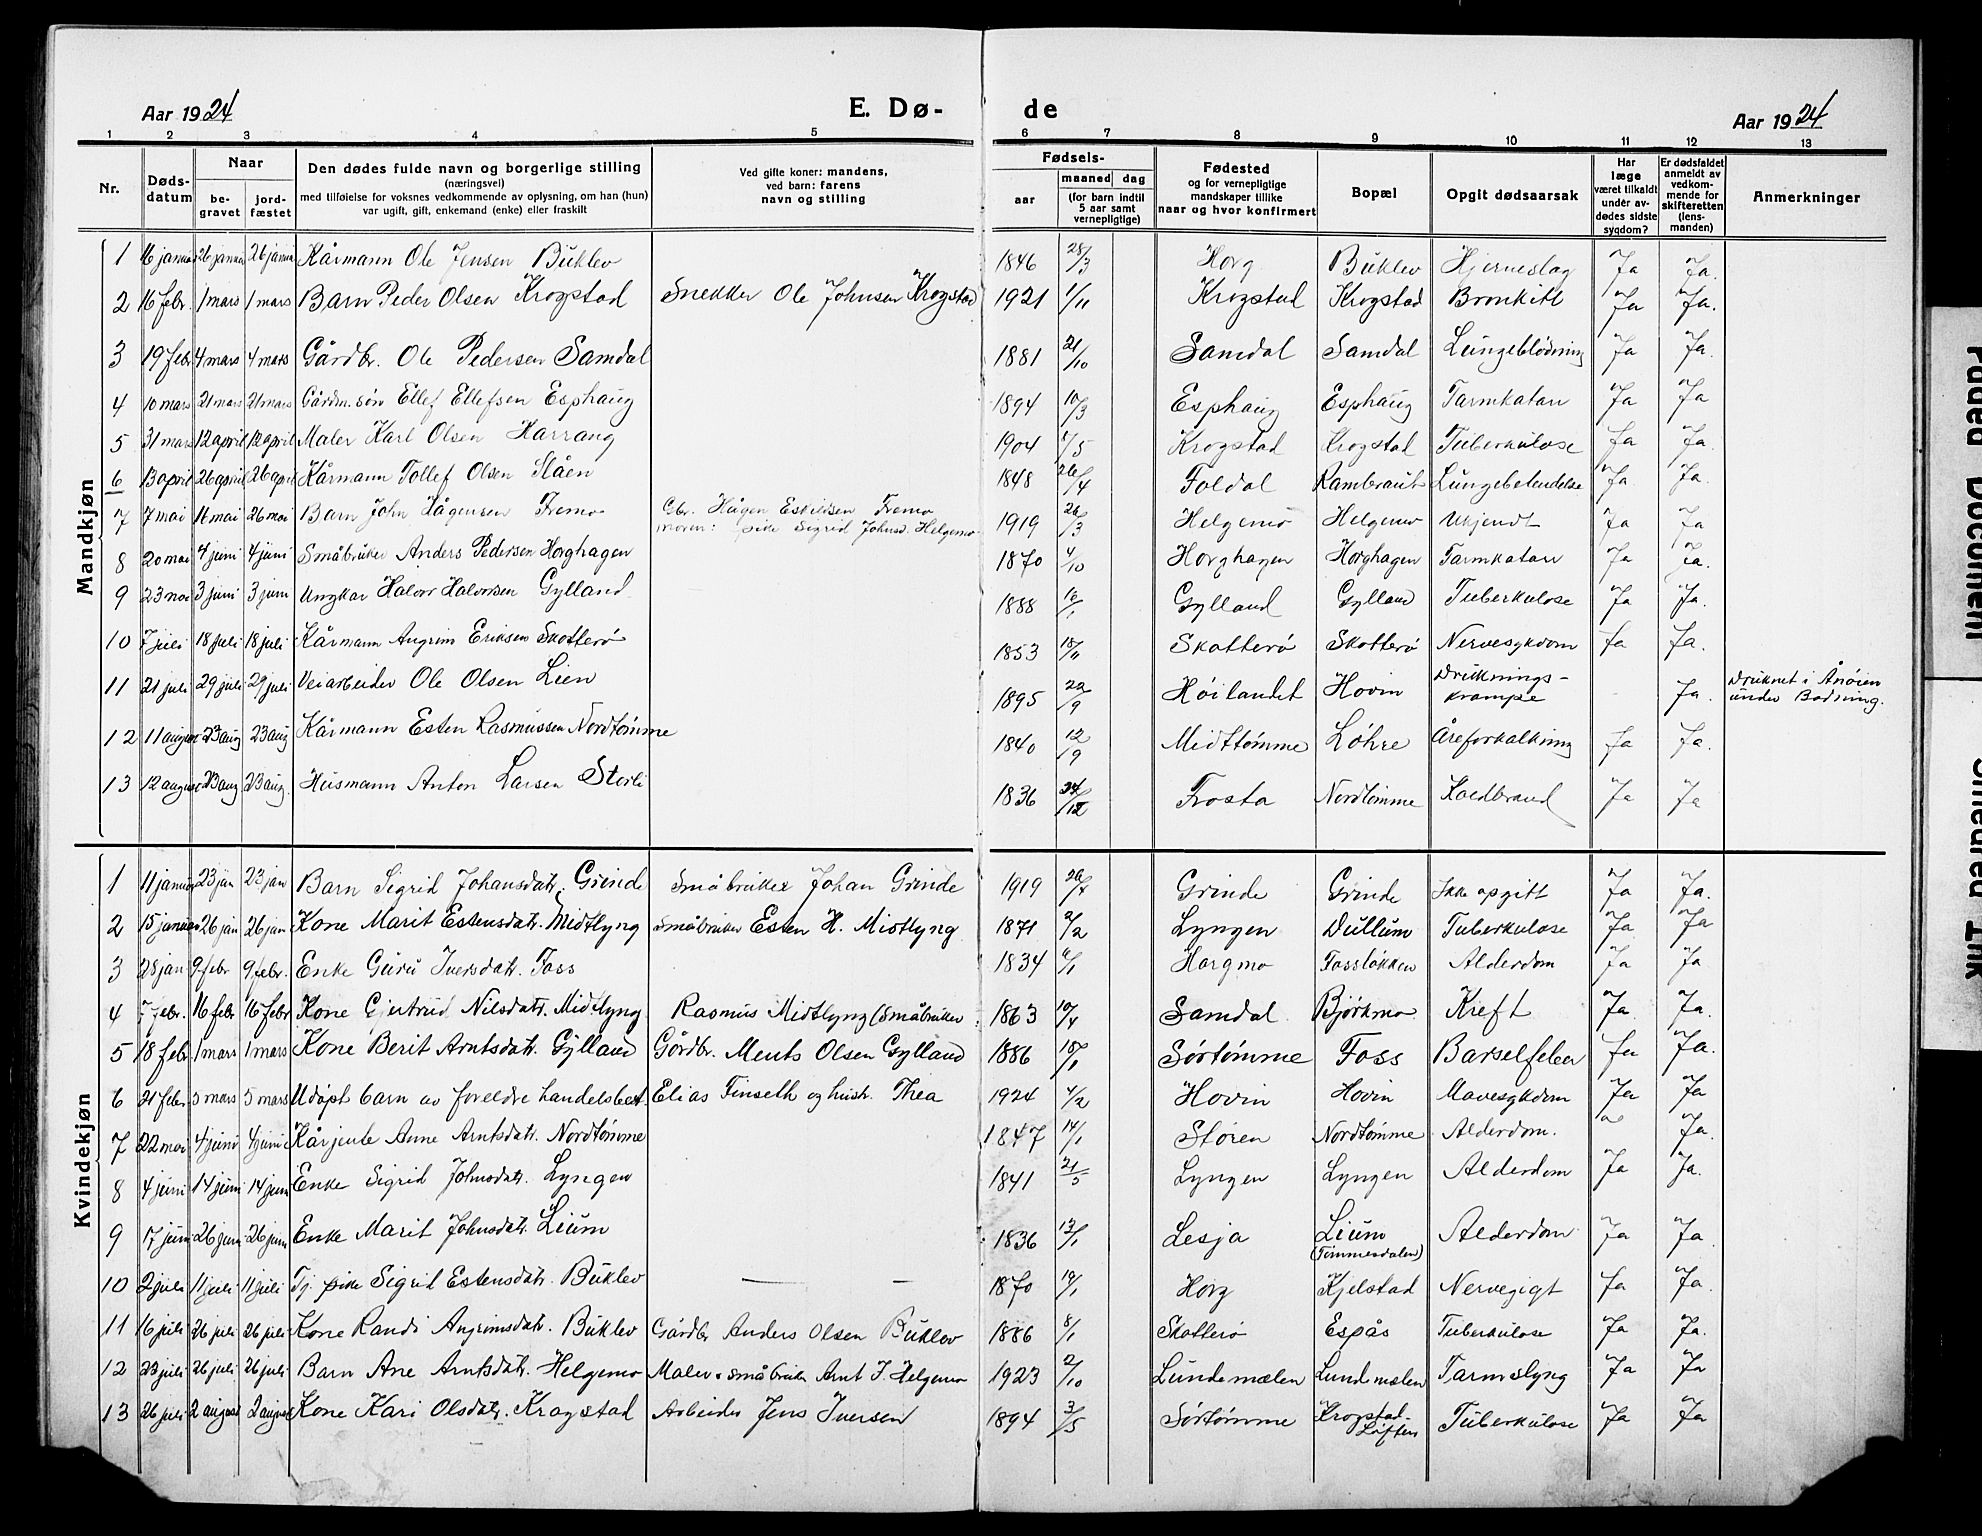 Aar 1924 E. Dø- de Aar 1924
1 2 3 4 5 6 7 8 9 10 11 12 13
Nr. Dødsdatum Naar begravet jordfæstet Den dødes fulde navn og borgerlige stilling (næringsvei) med tilføielse for voksnes vedkommende av oplysning, om han (hun) var ugift, gift, enkemand (enke) eller fraskilt Ved gifte koner: mandens, ved barn: farens navn og stilling Fødsels- aar maaned dag (for barn indtil 5 aar samt vernepligtige) Fødested og for vernepligtige mandskaper tillike naar og hvor konfirmert Bopæl Opgit dødsaarsak Har læge været tilkaldt under avdødes sidste sygdom? Er dødsfaldet anmeldt av vedkommende for skifteretten (lensmanden) Anmerkninger
Mandkjøn
1 16 januar 26 januar 26 januar Kårmann Ole Jensen Buklev 1846 28/3 Horg Buklev Hjerneslag Ja Ja.
2 16 febr. 1 mars 1 mars Barn Peder Olsen Krogstad Snekker Ole Johnsen Krogstad 1921 1/11 Krogstad Krogstad Bronkitt Ja Ja.
3 19 febr 4 mars 4 mars Gårdbr. Ole Pedersen Samdal 1881 21/10 Samdal Samdal Lungeblödning Ja Ja.
4 10 mars 21 mars 21 mars Gårdm.sön Ellef Ellefsen Esphaug 1894 10/3 Esphaug Esphaug Tarmkatarr Ja Ja
5 31 mars 12 april 12 april Maler Karl Olsen Harrang 1904 /5 Krogstad Krogstad Tuberkulose Ja Ja
6 13 april 26 april 26 april Kårmann Tollef Olsen Slåen 1848 26/4 Foldal Rambraut Lungebetendelse Ja Ja.
7 7 mai 14 mai 26 mai Barn John Hågensen Fremo Gbr. Hågen Eskildsen Fremo 1919 26/3 Helgemo Helgemo Ukjendt Ja Ja
moren: pike Sigrid Johnsd. Helgemo
8 20 mai 4 juni 4 juni Småbruker Anders Pedersen Horghagen 1870 4/10 Horghagen Horghagen Tarmkatarr Ja Ja.
9 23 mai 3 juni 3 juni Ungkar Halvor Halvorsen Gylland 1888 10/1 Gylland Gylland Tuberkulose Ja Ja.
10 7 juli 18 juli 18 juli Kårmann Angrim Eriksen Skotterö 1853 18/11 Skotterö Skotterö Nervesykdom Ja Ja.
11 21 juli 29 juli 29 juli Veiarbeider Ole Olsen Lien 1895 22/9 Höilandet Hovin Drukningskrampe Ja. Druknet i Ånöien under Badning.
12 11 august 23 aug 23 aug Kårmann Esten Rasmussen Nordtömme 1840 12/9 Midttömme Löhre Åreforkalkning Ja Ja.
13 12 august 23 aug 23 aug. Husmann Anton Larsen Storli 1836 24/12 Frosta Nordtömme Koldbrand Ja Ja
Kvindekjøn
1 11 januar 23 jan 23 jan Barn Sigrid Johansdatr. Grinde Småbruker Johan Grinde 1919 26/4 Grinde Grinde Ikke opgitt Ja Ja.
2 15 januar 26 jan 26 jan Kone Marit Estensdatr. Midtlyng Småbruker Esten H. Midtlyng 1871 2/2 Lyngen Dullum Tuberkulose Ja Ja
3 28 jan 9 febr 9 febr. Enke Guru Iversdatr. Foss 1834 6/1 Horgmo Fosslökken Alderdom Ja Ja
4 7 febr. 16 febr 16 febr Kone Gjertrud Nilsdatr. Midtlyng Rasmus Midtlyng (Småbruker 1863 10/4 Samdal Bjørkmo Kreft Ja Ja.
5 18 febr 1 mars 1 mars Kone Berit Arntsdatr. Gylland Gårdbr. Ments Olsen Gylland 1886 18/1 Sörtömme Foss Barselfeber Ja Ja.
6 21 febr 5 mars 5 mars Udöpt barn av foreldre handelsbest. Elias Finseth og hustr. Thea 1924 4/2 Hovin Hovin Mavesykdom Ja Ja
7 22 mai 4 juni 4 juni Kårjente Anne Arntsdatr. Nordtömme 1847 14/1 Stören Nordtömme Alderdom. Ja.
8 4 juni 14 juni 14 juni Enke Sigrid Johnsdatr. Lyngen 1841 21/5 Lyngen Lyngen Alderdom Ja Ja.
9 17 juni 26 juni 26 juni Enke Marit Johnsdatr. Lium 1836 13/1 Lesja Lium (Tømmesdalen) Alderdom Ja Ja.
10 2 juli 11 juli 11 juli Tj. pike Sigrid Estensdatr. Buklev — — 1870 19/1 Horg Kjelstad Nervegigt Ja Ja.
11 16 juli 26 juli 26 juli Kone Randi Angrimsdatr. Buklev Gårdbr Anders Olsen Buklev 1886 8/1 Skotterö Espås Tuberkulose Ja Ja.
12 23 juli 26 juli 26 juli Barn Ane Arntsdatr. Helgemo Maler o småbruker Arnt J. Helgemo 1923 2/10 Lundemælen Lundmælen Tarmslyng Ja Ja
13 26 juli 2 august 2 august Kone Kari Olsdatr. Krogstad Arbeider Jens Iversen 1894 3/5 Sörtömme Krogstad-Löften Tuberkulose Ja Ja
Faded Document
Smeared Ink